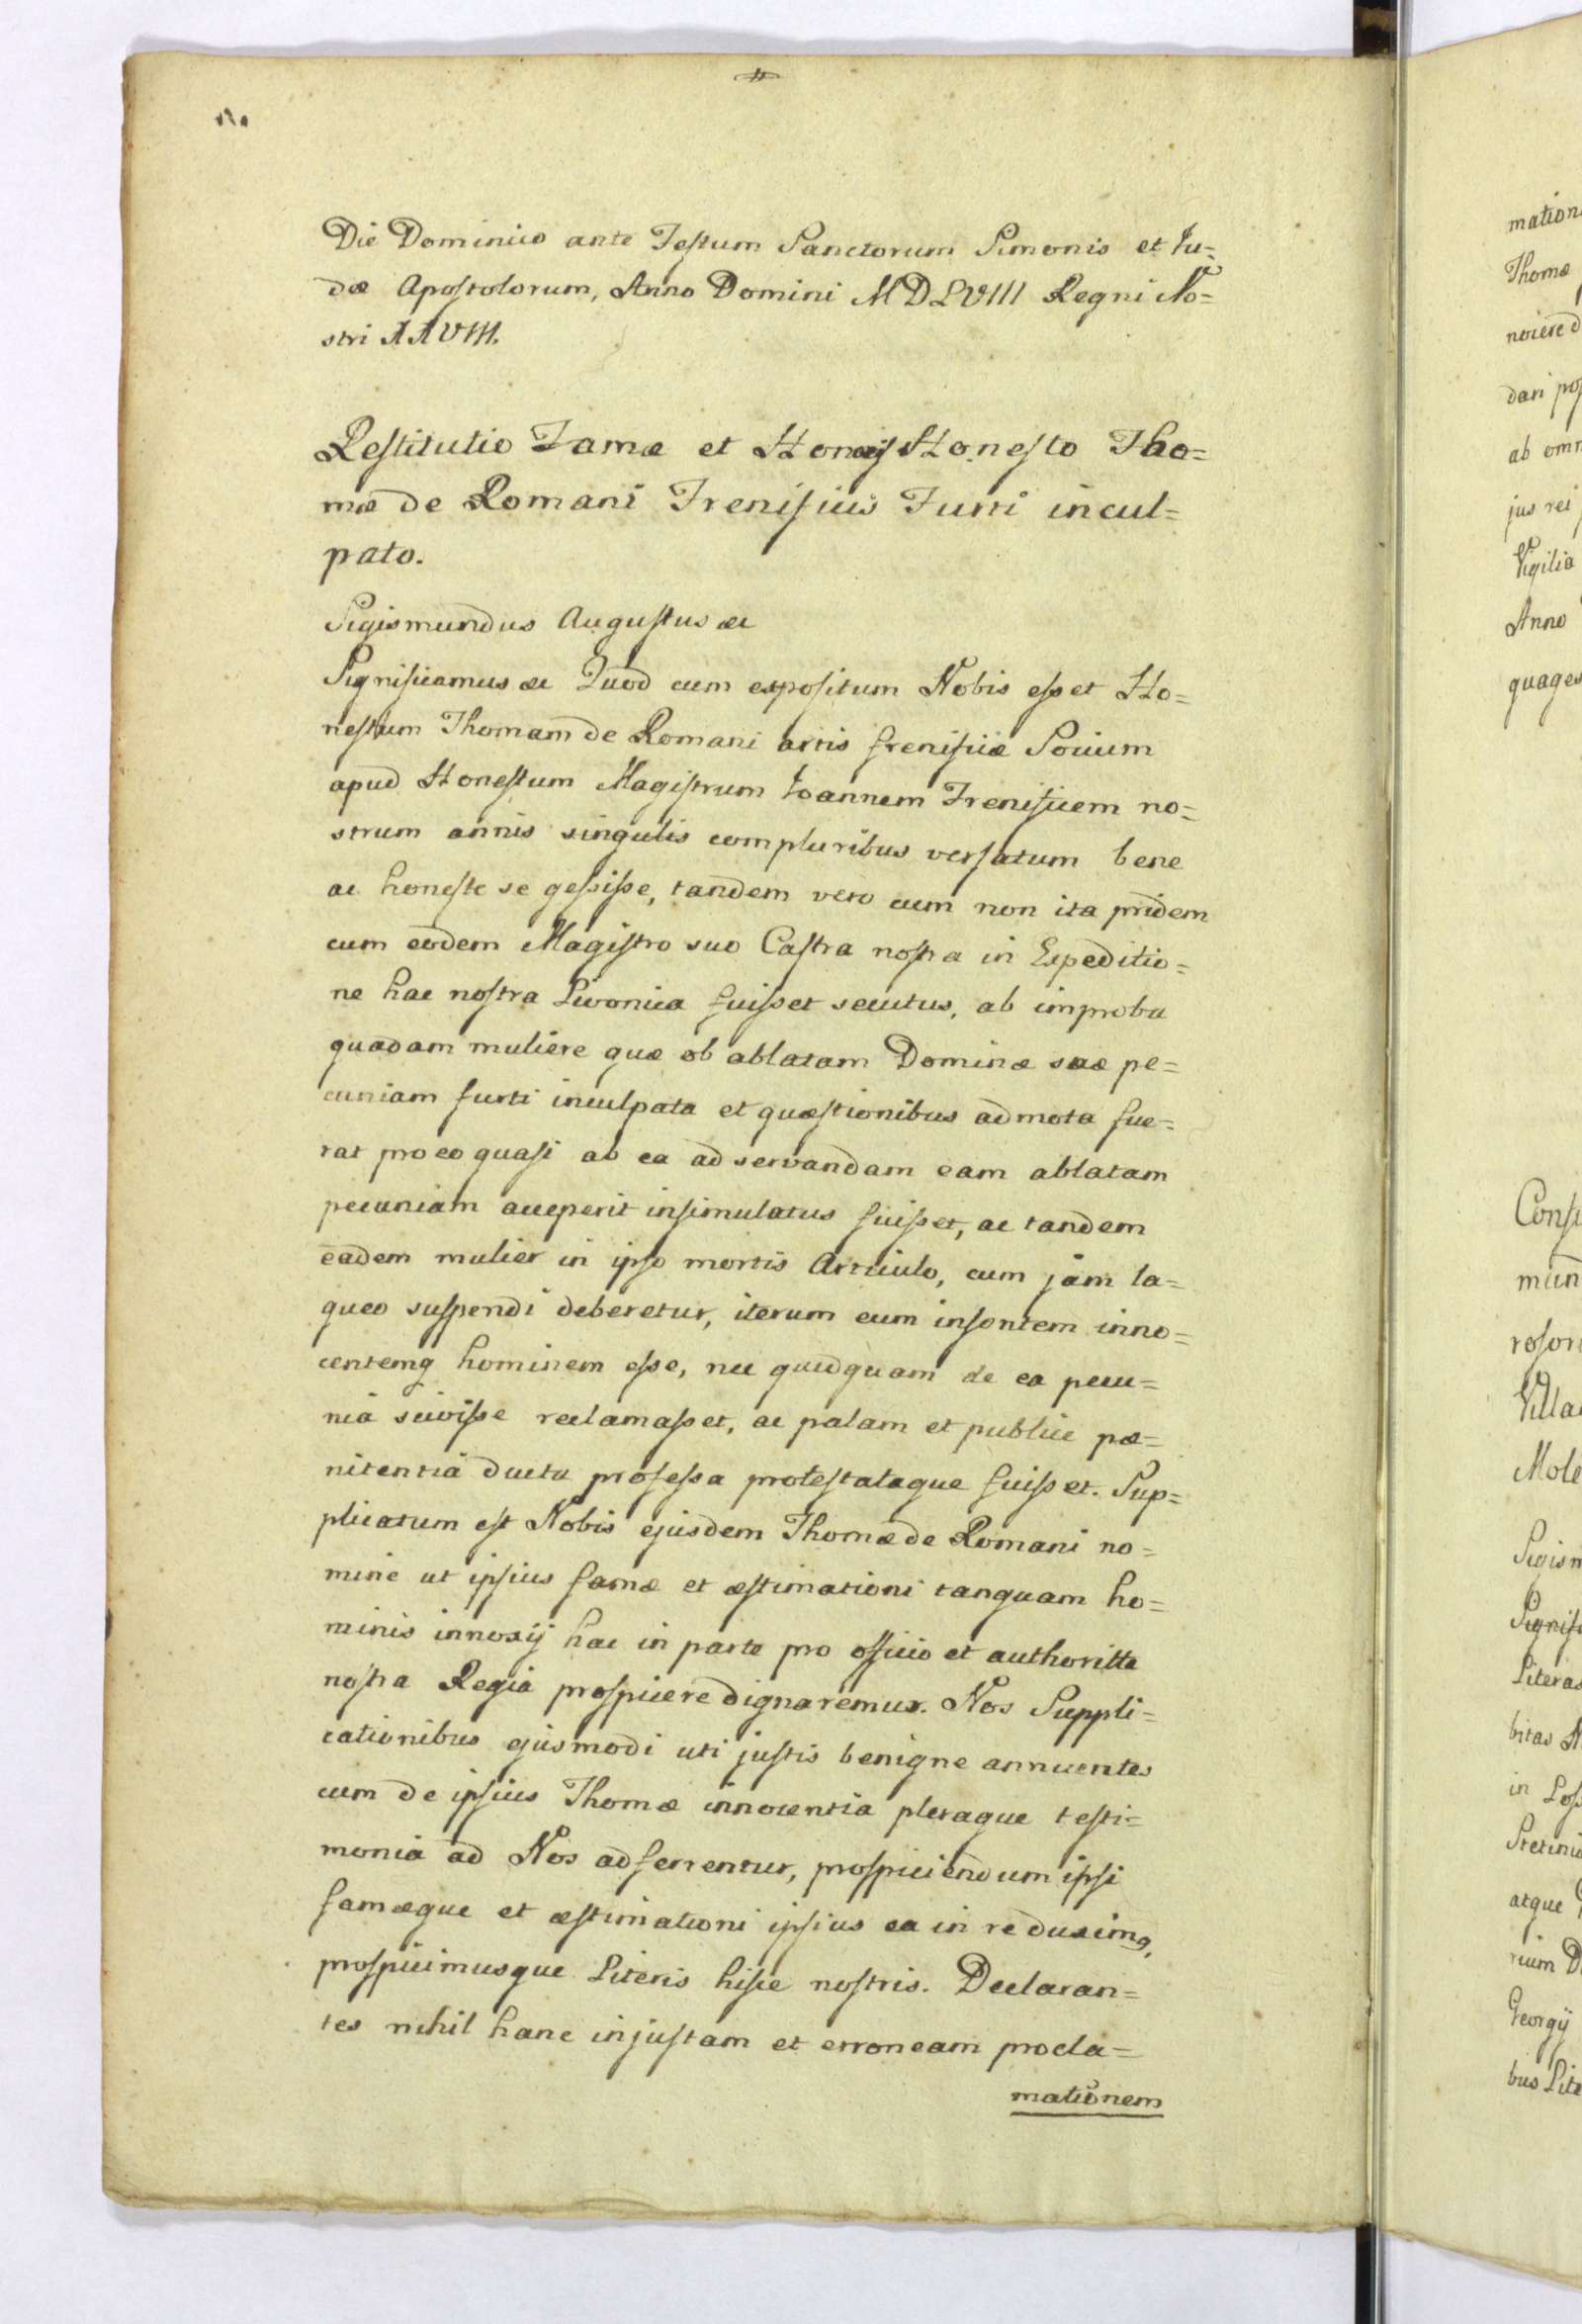 Die Dominico ante Festum Sanctorum Simonis et Iu=
dæ Apostolorum, Anno Domini MDLVIII Regni No=
stri XXVIII.
Restitutio Famæ et Honoris Honesto Tho=
mæ de Romani Frenificis Furti incul=
pato.
Sigismundus Augustus &c
Significamus &c Quod cum expositum Nobis esset Ho=
nestum Thomam de Romani artis frenificiæ Socium
apud Honestum Magistrum Ioannem Frenificem no=
strum annis singulis compluribus versatum bene
ac honeste se gessisse, tandem vero cum non ita pridem
cum eodem Magistro suo Castra nostra in Expeditio=
ne hac nostra Livonica fuisset secutus, ab improba
quadam muliere quæ ob ablatam Dominæ suæ pe=
cuniam furti inculpata et quæstionibus admota fue=
rat pro eo quasi ab ea ad servandam eam ablatam
pecuniam acceperit insimulatus fuisset, ac tandem
eadem mulier in ipso mortis Articulo, cum jam la=
queo suspendi deberetur, iterum eum insontem inno=
centemq hominem esse, nec quidquam de ea pecu=
nia scivisse reclamasset, ac palam et publice pæ=
nitentia ducta professa protestataque fuisset. Sup=
plicatum est Nobis ejusdem Thomæ de Romani no=
mine ut ipsius famæ et æstimationi tanquam ho=
minis innoxij hac in parte pro officio et authoritte
nostra Regia prospicere dignaremur. Nos Suppli=
cationibus ejusmodi uti justis benigne annuentes
cum de ipsius Thomæ innocentia pleraque testi=
monia ad Nos adferrentur, prospiciendum ipsi
famæque et æstimationi ipsius ea in re duximq,
prospicimusque Literis hisce nostris. Declaran=
tes nihil hanc injustam et erroneam procla=
mationem
mation
Thomæ
dari
ab omn
jus rei
Vigilia
Anno
quages
Cons
mun
roson
Villa
Mole
Sigism
Signif
Literas
bitas
in
atque
rium
Georgij
bus Lite